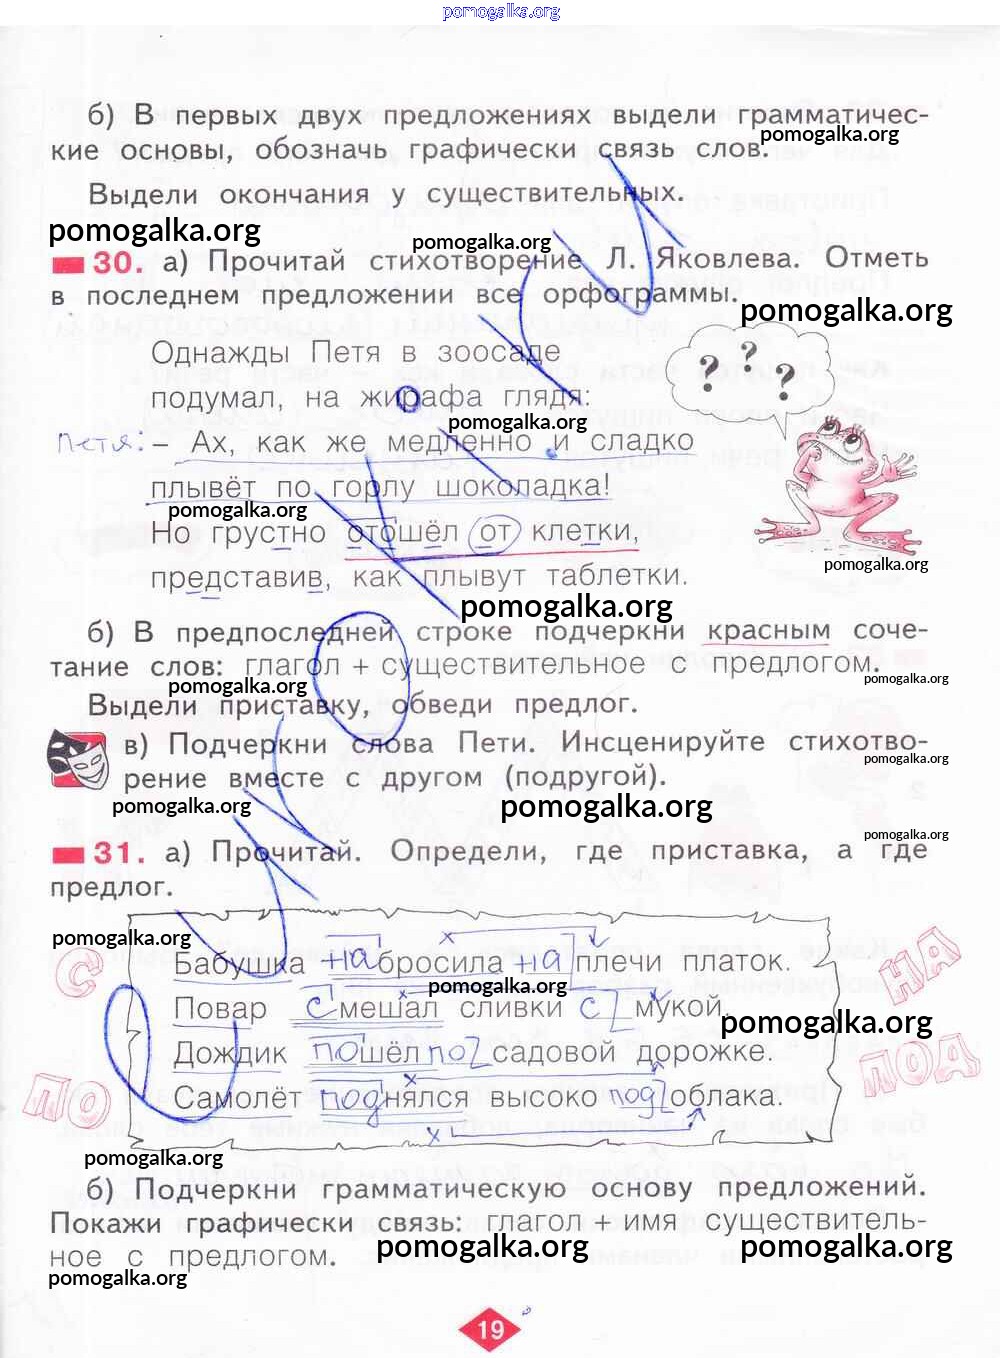 pomogalka.org
б) В первых двух предложениях выдели грамматичес-
pomogalka.org
кие основы, обозначь графически связь слов.
Выдели окончания у существительных.
pomogalka.org
pomogalka.org
30. а) Прочитай стихотворение Л. Яковлева. Отметь
в последнем предложении все орфограммы.
pomogalka.org
Однажды Петя в зоосаде
подумал, на жирафа глядя:
? ? ?
pomogalka.org
Петя: – Ах, как же медленно и сладко
плывёт по горлу шоколадка!
pomogalka.org
Но грустно отошёл от клетки,
pomogalka.org
представив, как плывут таблетки.
pomogalka.org
б) В предпоследней строке подчеркни красным соче-
тание слов: глагол + существительное с предлогом.
pomogalka.org
pomogalka.org
Выдели приставку, обведи предлог.
в) Подчеркни слова Пети. Инсценируйте стихотво-
pomogalka.org
рение вместе с другом (подругой).
pomogalka.org
pomogalka.org
pomogalka.org
31. а) Прочитай. Определи, где приставка, а где
предлог.
pomogalka.org
С
НА
Бабушка набросила на плечи платок.
pomogalka.org
Повар смешал сливки с мукой.
pomogalka.org
Дождик пошёл по садовой дорожке.
ПО
ПОД
Самолёт поднялся высоко под облака.
pomogalka.org
б) Подчеркни грамматическую основу предложений.
Покажи графически связь: глагол + имя существитель-
ное с предлогом.
pomogalka.org
pomogalka.org
pomogalka.org
19